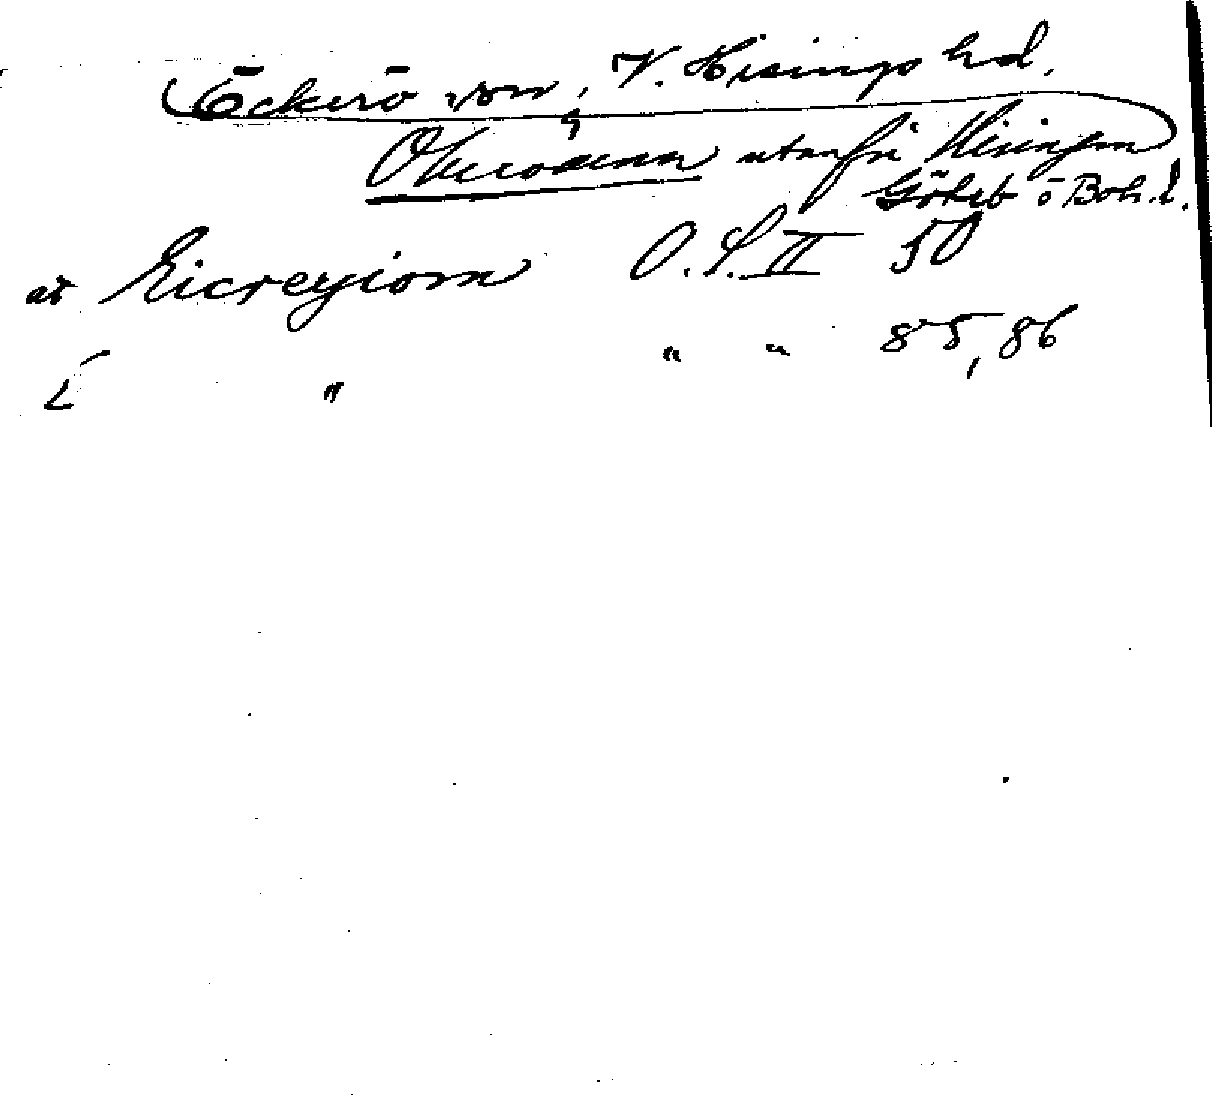 Öckerö sn, V. Hisings hd.
Öckeröarna utanför Hisingen
Göteb o Boh. l.
at Eicreyiom O. S. II 50
í " " " 85, 86